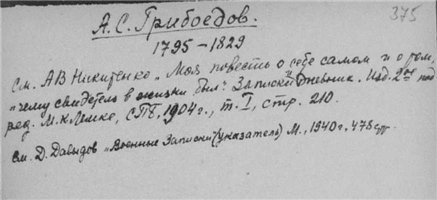 375
А.С. Грибоедов.
1795–1829
См. АВ Никитенко „Моя повесть о себе самом и о том,
„чему свидетель в жизни был". Записки и Дневник. Изд. 2ое под
ред. М.К Лемке, СПб, 1904г., т. I, стр. 210.
См. Д. Давыдов „Военные Записки" (указатель) М., 1940г. 478 стр.